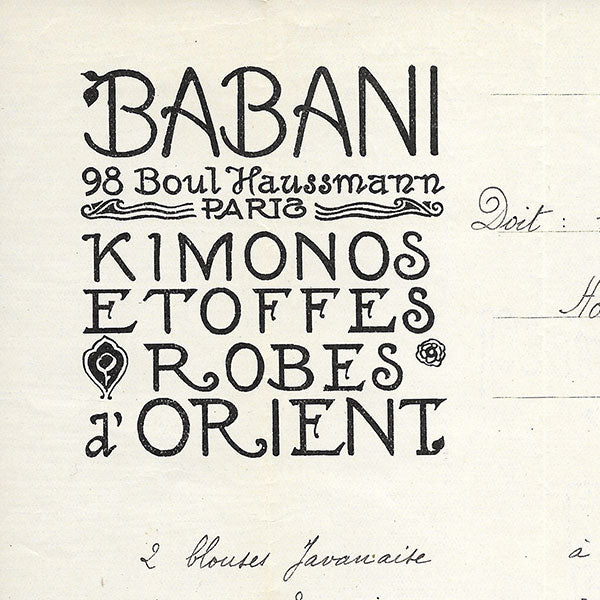 BABANI
98 Boul Haussmann
PARIS
Doit :
KIMONOS
ETOFFES
ROBES
d'ORIENT
2 blouses Javanaise à